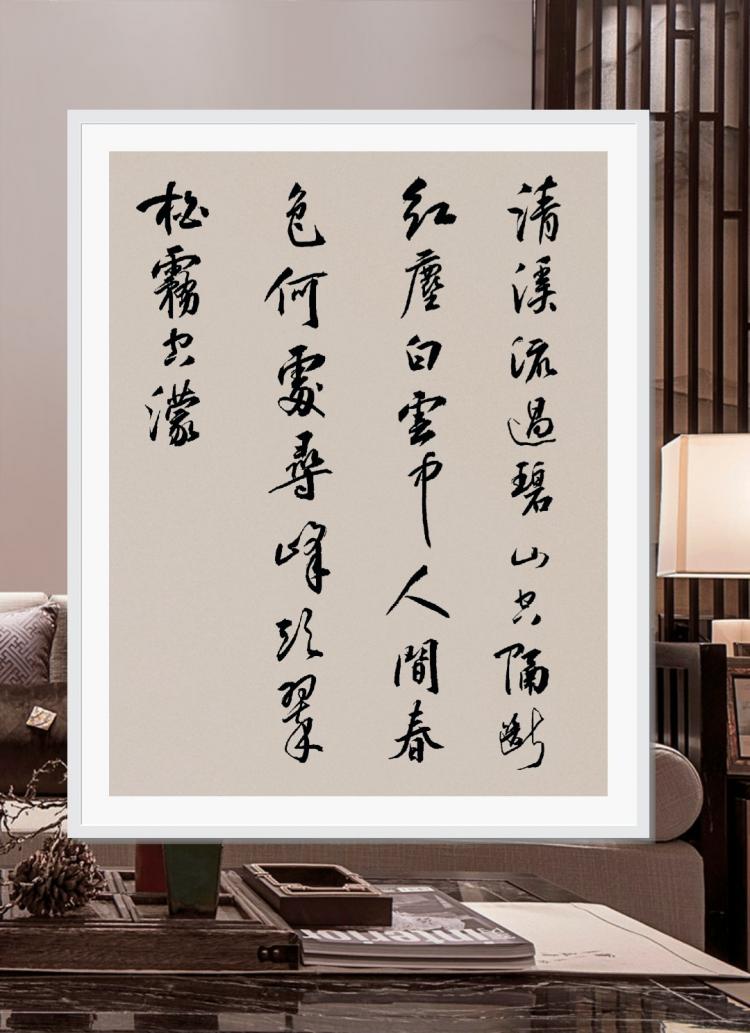 清溪流過碧山空隔斷
紅塵白雲中人間春
色何處尋峰頭翠
松霧空濛
interior